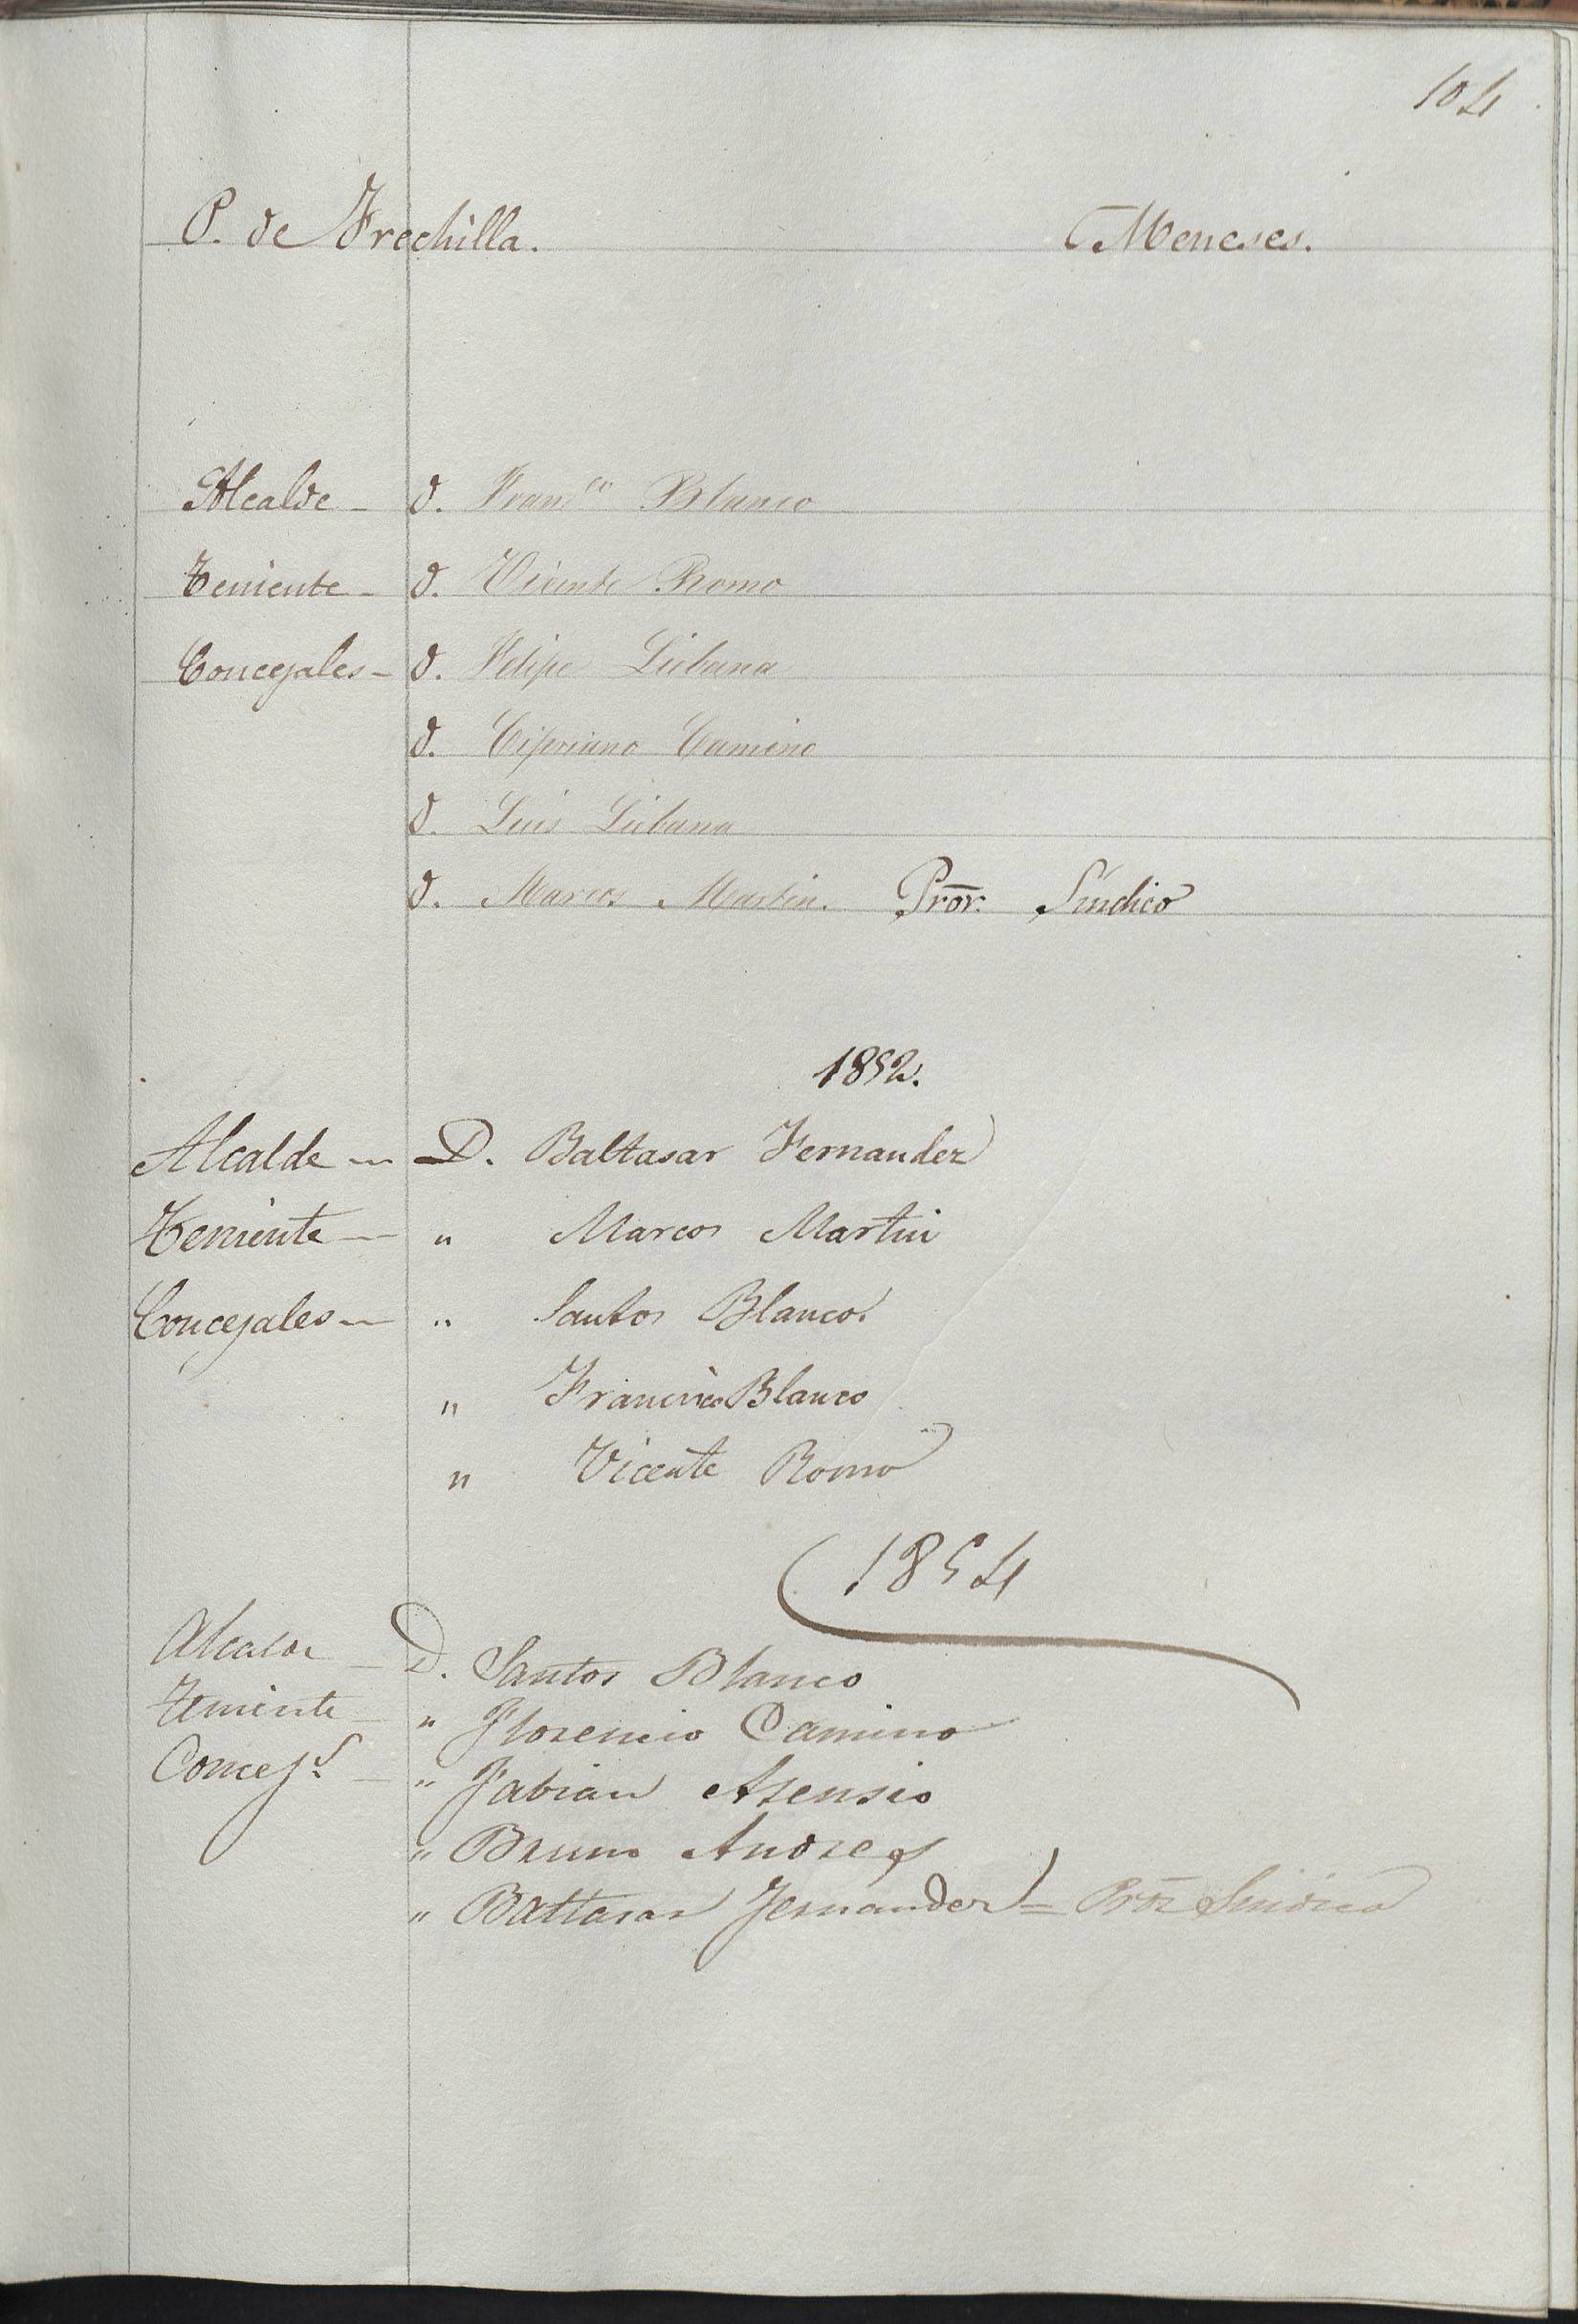 104
P. de Frechilla. Meneses.
Alcalde - D. Franco Blanco
Teniente - D. Vicente Romo
Concejales - D. Felipe Liebana
D. Cipriano Camino
D. Luis Liebana
D. Marcos Martin. Pror. Síndico
1852.
Alcalde - D. Baltasar Fernandez
Teniente - " Marcos Martin
Concejales - " Santos Blanco.
" Francisco Blanco
" Vicente Romo
1854
Alcalde - D. Santos Blanco
Teniente - " Florencio Camino
Concejs. - " Fabian Asensio
" Bruno Andres
" Baltasar Fernandez = Pror Sindico